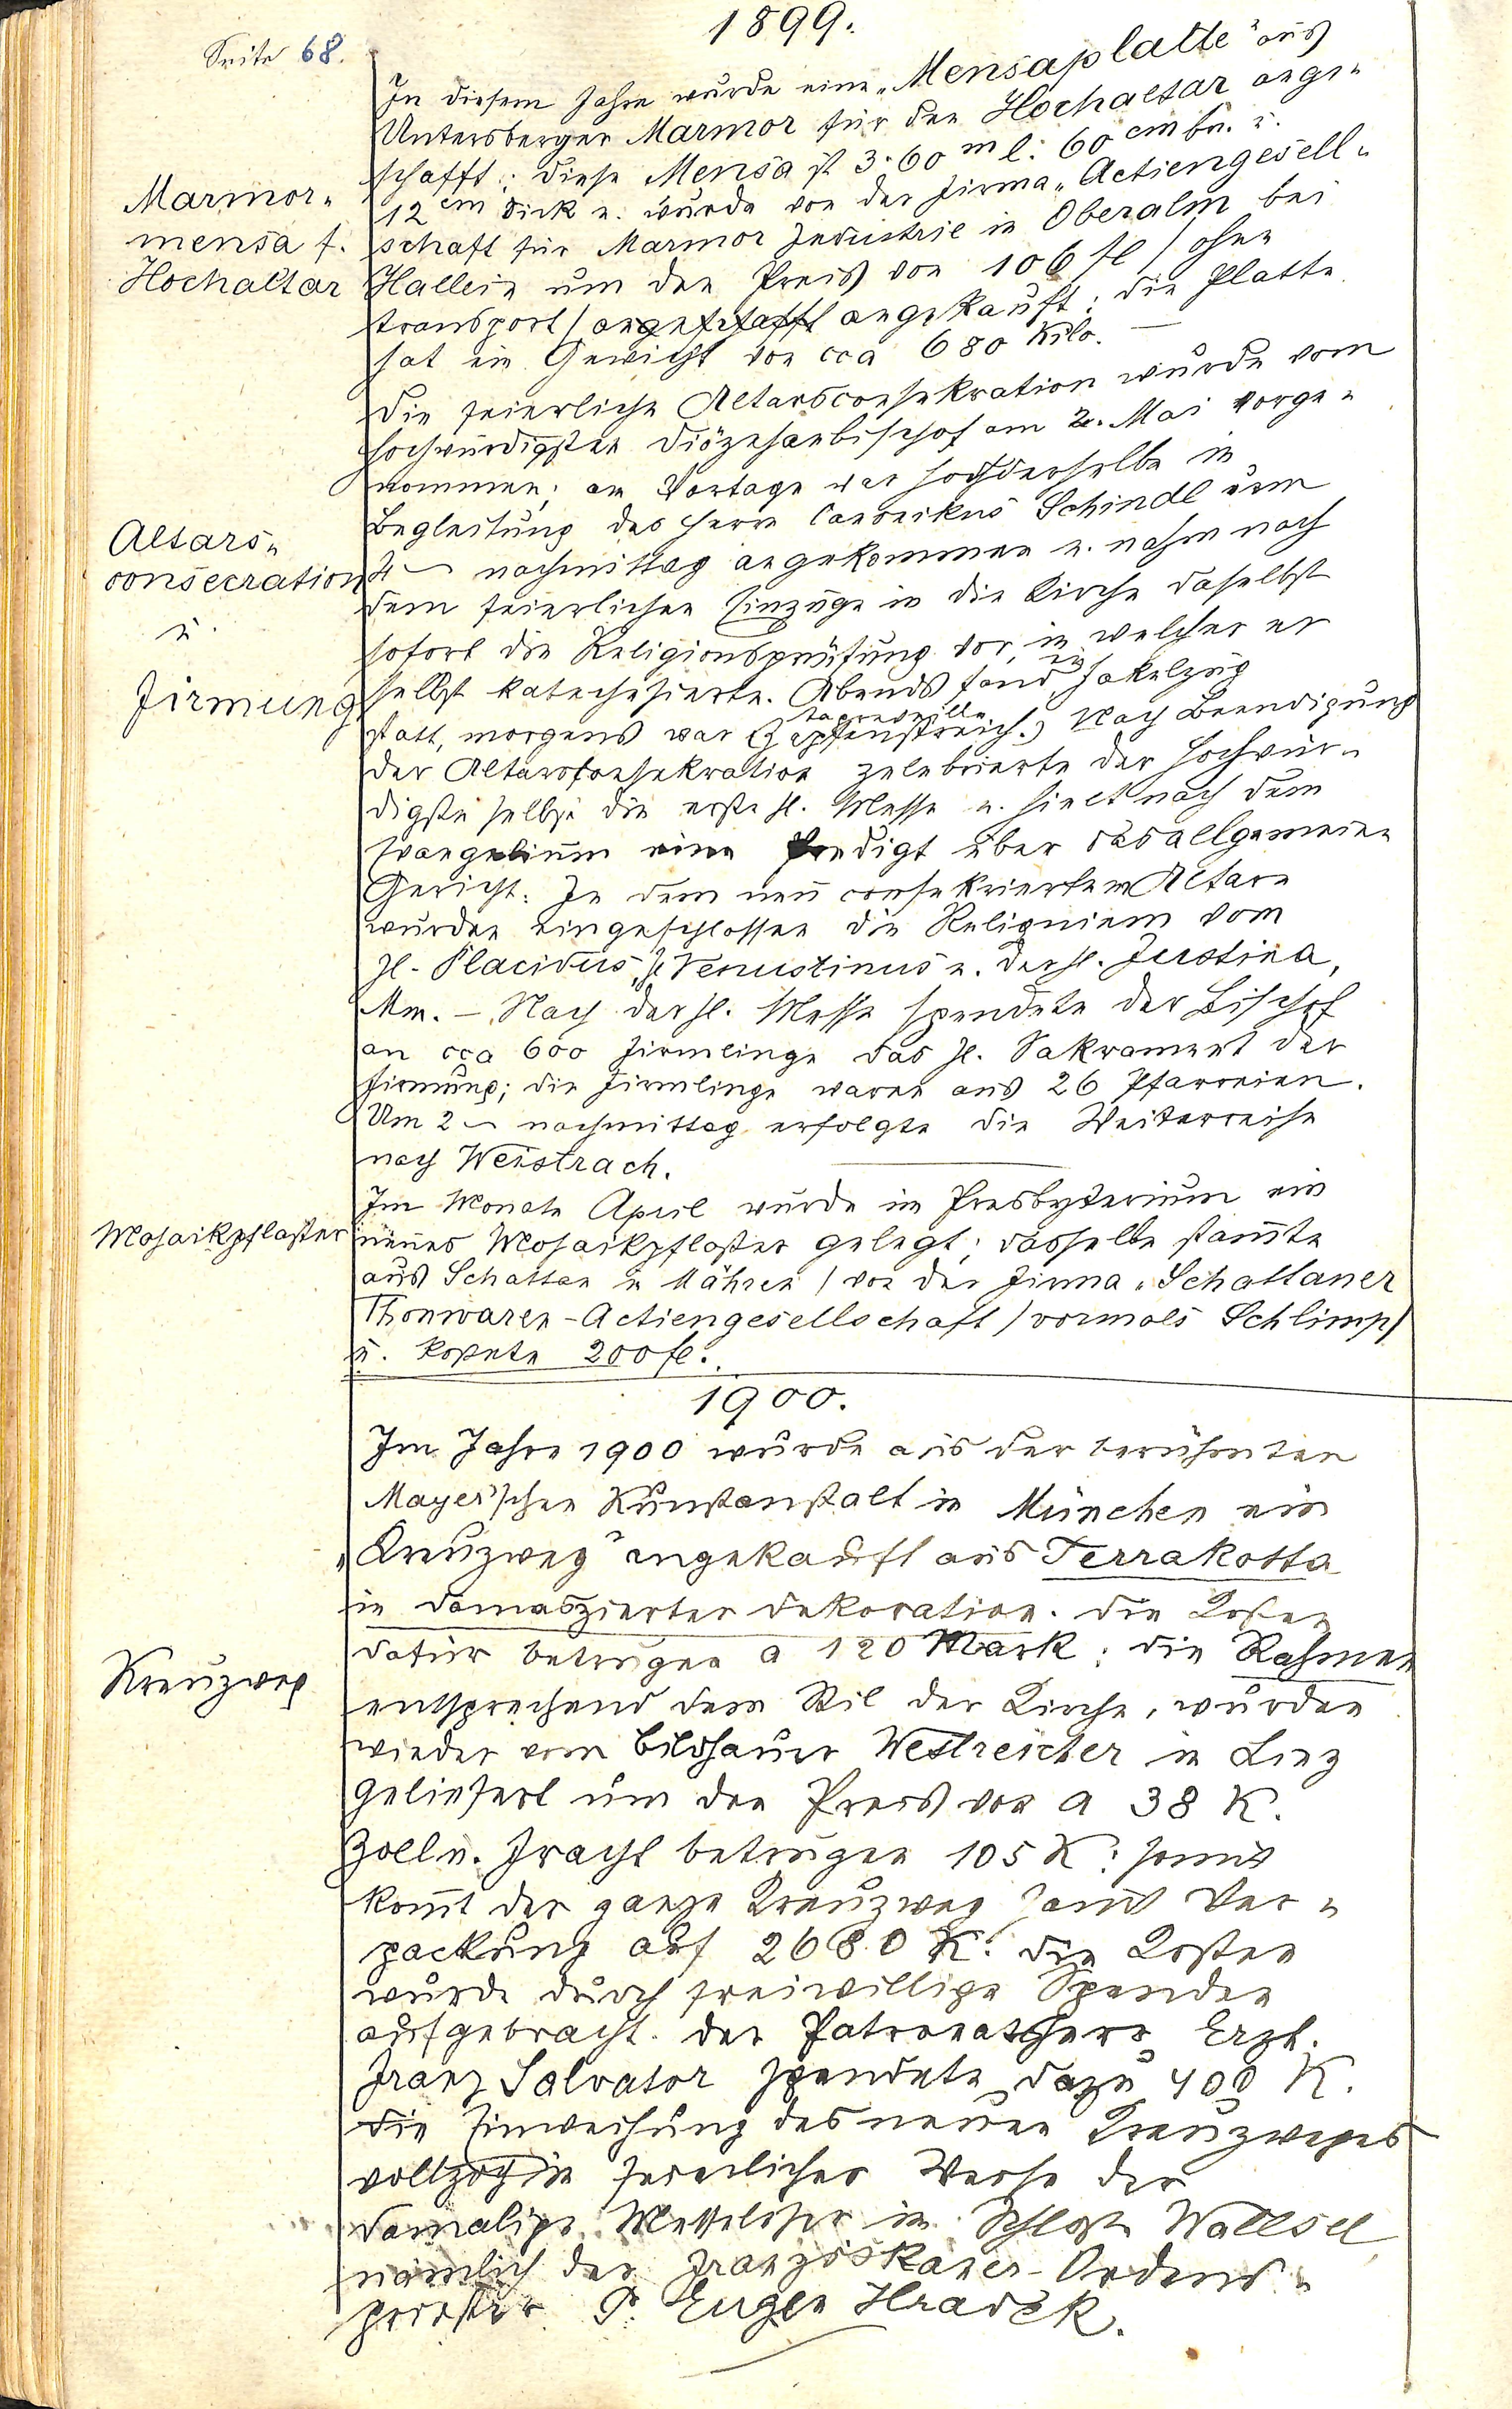 1899.
Seite 68.
In diesem Jahre wurde eine „Mensaplatte" aus
Untersberger Marmor für den Hochaltar ange-
schafft; diese Mensa ist 3·60 m l. 60 cm br. u.
12 cm dick u. wurde von der Firma „Actiengesell-
schaft für Marmor Industrie in Oberalm bei
Hallein um den Preis von 106 fl / ohne
Transport / angeschafft angekauft; die Platte
hat ein Gewicht von cca 680 Kilo. —
Marmor-
mensa f.
Hochaltar
Die feierliche Altarsconsekration wurde vom
hochwürdigsten Diözesanbischof am 2. Mai vorge-
nommen; am Vortage war hochderselbe in
Begleitung des Herrn Canonikus Schindl um
4 nachmittag angekommen u. nahm nach
dem feierlichen Einzuge in die Kirche daselbst
sofort die Religionsprüfung vor, in welcher er
selbst katechesierte. Abends fand ein Fakelzug
statt, morgens war (Zapfenstreich.) tagreveille Nach Beendigung
der Altarskonsekration zelebrierte der Hochwür-
digste selbst die erste hl. Messe u. hielt nach dem
Evangelium eine Predigt über das allgemeine
Gericht. In dem neu consekrierten Altare
wurden eingeschlossen die Reliquien vom
hl. Placidus, hl. Venustinus u. der hl. Justina,
Mm. – Nach der hl. Messe spendete der Bischof
an cca 600 Firmlinge das hl. Sakrament der
Firmung; die Firmlinge waren aus 26 Pfarreien.
Um 2 nachmittag erfolgte die Weiterreise
nach Weistrach.
Altars-
consecration
u.
Firmung
Im Monate April wurde im Presbyterium ein
neues Mosaikpflaster gelegt; dasselbe stamte
aus Schattau in Mähren / von der Firma „Schattauer
Thonwaren-Actiengesellschaft / vormals Schlimp /
u. kostete 200 fl.
Mosaikpflaster
1900.
Im Jahre 1900 wurde aus der berühmten
Mayer'schen Kunstanstalt in München ein
„Kreuzweg" angekauft aus Terrakotta
in damaszierter Dekoration. Die Kosten
dafür betrugen a 120 Mark; die Rahmen
entsprechend dem Stil der Kirche, wurden
wieder vom Bildhauer Westreicher in Linz
geliefert um den Preis von a 38 K.
Zoll u. Fracht betrugen 105 K; somit
komt der ganze Kreuzweg samt Ver-
packung auf 2680 K. Die Kosten
wurde durch freiwillige Spenden
aufgebracht. Der Patronatsherr Erzh.
Franz Salvator spendete dazu 400 K.
Die Einweihung des neuen Kreuzweges
vollzog in feierlicher Weise der
damalige Messeleser im Schloße Wallsee
nämlich der Franziskaner-Ordens-
priester P. Eugen Hradek.
Kreuzweg